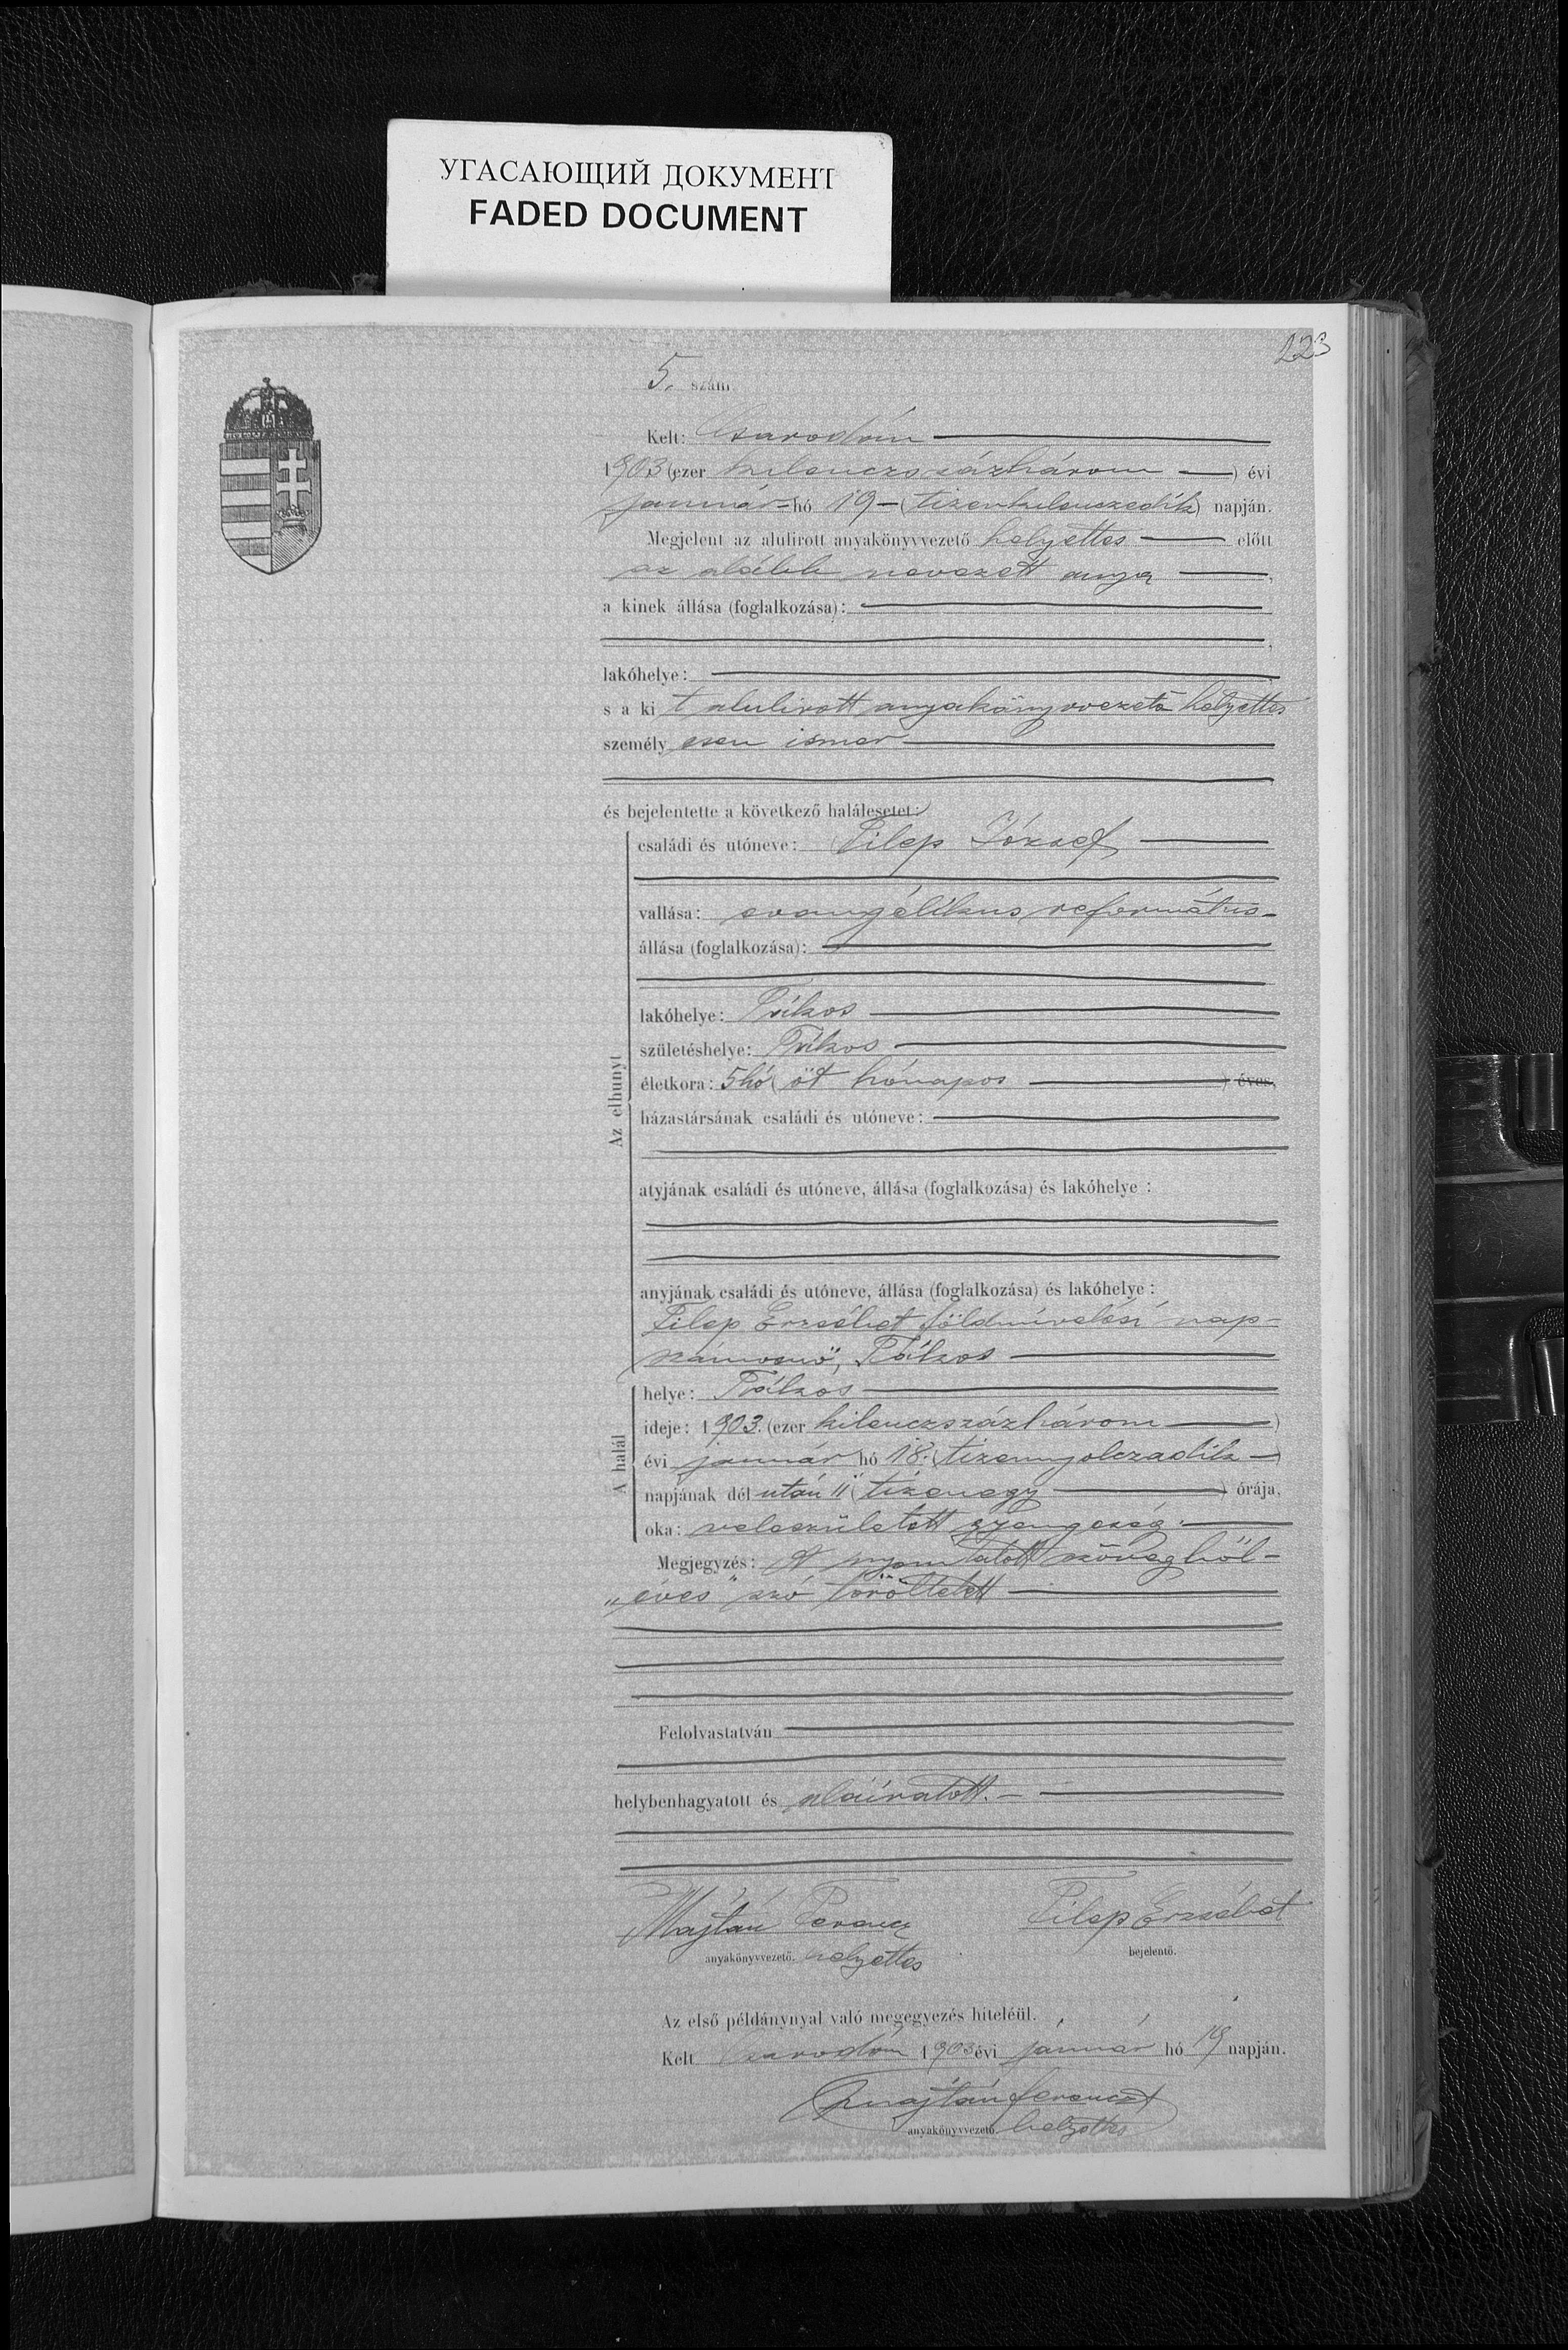 УГАСАЮЩИЙ ДОКУМЕНТ
FADED DOCUMENT
223
5. szám
Kelt: Csarodán
1903 (ezer kilenczszázhárom) évi
január hó 19 (tizenkilenczedik) napján.
Megjelent az alulirott anyakönyvvezető helyettes előtt
az alább nevezett anya,
a kinek állása (foglalkozása):
lakóhelye:
s a kit alulirott anyakönyvvezető helyettes
személyesen ismer
és bejelentette a következő halálesetet:
Az elhunyt
családi és utóneve: Filep József
vallása: evangélikus református
állása (foglalkozása):
lakóhelye:
születéshelye:
életkora: 5 hó (öt hónapos) éves,
házastársának családi és utóneve:
atyjának családi és utóneve, állása (foglalkozása) és lakóhelye:
anyjának családi és utóneve, állása (foglalkozása) és lakóhelye:
Filep Erzsébet földmívelési nap-
számosnő,
A halál
helye:
ideje: 1903. (ezer kilenczszázhárom)
évi január hó 18. (tizennyolczadik)
napjának dél után 11 (tizenegy) órája.
oka: veleszületett gyengeség.
Megjegyzés: A nyomtatott szövegből
„éves" szó töröltetett
Felolvastatván
helybenhagyatott és aláiratott.
Majtán Ferencz Filep Erzsébet
anyakönyvvezető. helyettes bejelentő.
Az első példánynyal való megegyezés hiteléül.
Kelt Csarodán 1903 évi január hó 19 napján.
Majtán Ferencz
anyakönyvvezető. helyettes